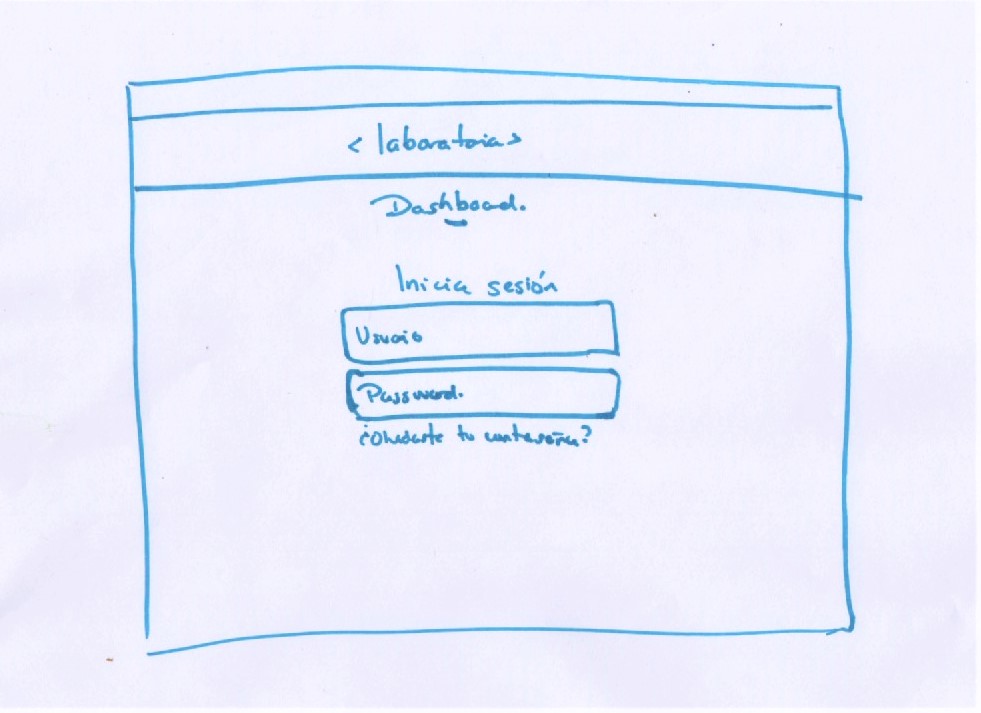 < laboratoria >
Dashboard.
Inicia sesión
Usuario
Password.
¿Olvidaste tu contraseña?